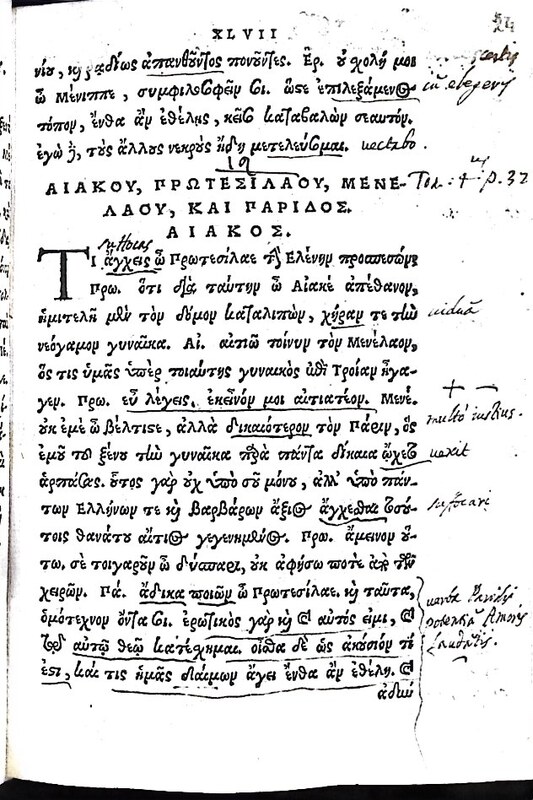 XLVII
νίου, καὶ ῥαδίως ἀπανθοῦντος πονοῦντες. Ἑρ. οὐ χολή μοι
ὦ Μένιππε, συμφιλοσοφεῖν σοι. ὥστε ἐπιλεξάμενος
τόπον, ἔνθα ἂν ἐθέλῃς, κεῖσο καταβαλὼν σεαυτόν.
ἐγὼ δὲ, τοὺς ἄλλους νεκροὺς ἤδη μετελεύσομαι.
19
ΑΙΑΚΟΥ, ΠΡΩΤΕΣΙΛΑΟΥ, ΜΕΝΕ- p. 32
ΛΑΟΥ, ΚΑΙ ΠΑΡΙΔΟΣ.
ΑΙΑΚΟΣ.
Τί ἄγχεις ὦ Πρωτεσίλαε τὴν Ελένην προσπεσών;
Πρω. ὅτι διὰ ταύτην ὦ Αἰακὲ ἀπέθανον,
ἡμιτελῆ μὲν τὸν δόμον καταλιπὼν, χήραν τε τὴν
νεόγαμον γυναῖκα. Αἰ. αἰτιῶ τοίνυν τὸν Μενέλαον,
ὅς τις ὑμᾶς ὑπὲρ τοιαύτης γυναικὸς ἐπὶ Τροίαν ἤγα-
γεν. Πρω. εὖ λέγεις. ἐκεῖνόν μοι αἰτιατέον. Μενέ.
οὐκ ἐμὲ ὦ βέλτιστε, ἀλλὰ δικαιότερον τὸν Πάριν, ὃς
ἐμοῦ τοῦ ξένου τὴν γυναῖκα παρὰ πάντα δίκαια ᾤχετο
ἁρπάσας. οὗτος γὰρ οὐχ ὑπὸ σοῦ μόνου, ἀλλ' ὑπὸ πάν-
των Ελλήνων τε καὶ βαρβάρων ἄξιος ἄγχεσθαι τοσού-
τοις θανάτου αἴτιος γεγενημένος. Πρω. ἄμεινον οὕ-
τω. σὲ τοιγαροῦν ὦ δύσπαρι, οὐκ ἀφήσω ποτὲ ἀπὸ τῶν
χειρῶν. Πά. ἄδικα ποιῶν ὦ Πρωτεσίλαε. καὶ ταῦτα,
ὁμότεχνον ὄντα σοι. ἐρωτικὸς γὰρ καὶ αὐτός εἰμι, καὶ
τῷ αὐτῷ θεῷ κατέχημαι. οἶσθα δὲ ὡς ἀκούσιόν τι
ἐστι, καί τις ἡμᾶς δαίμων ἄγει ἔνθα ἂν ἐθέλῃ. καὶ
ἀδύν